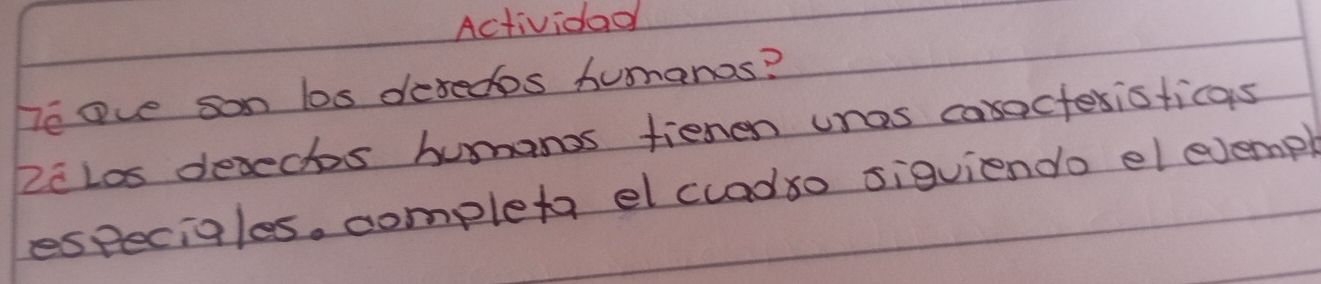 Actividad
1¿Que son los derechos humanos?
2¿Los derechos humanos tienen unas caracteristicas
especiales. completa el cuadro siguiendo el ejempl